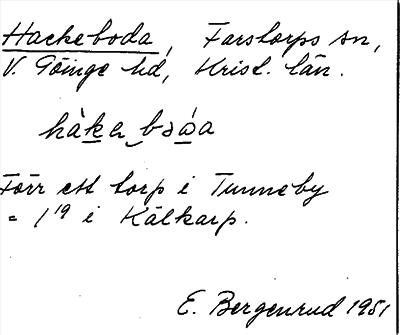 Hackeboda, Farstorps sn,
V. Göinge hd, Krist. län.
Förr ett torp i Tunneby
= 1¹⁹ i Kälkarp.
E. Bergenrud 1951